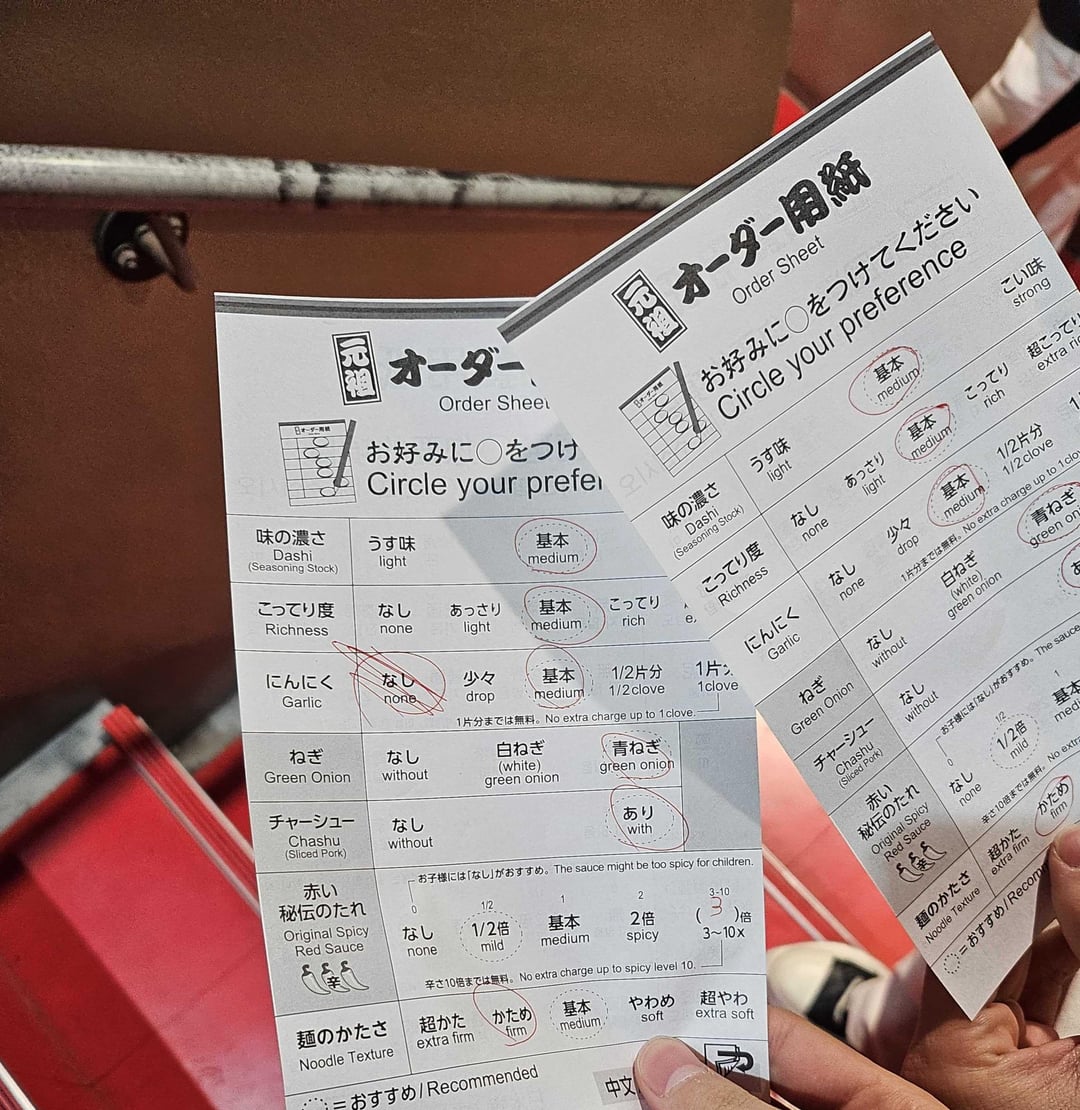 元祖 オーダー
Order Sheet
お好みに○をつけ
Circle your prefe
味の濃さ うす味 基本
Dashi light medium
(Seasoning Stock)
こってり度 なし あっさり 基本 こってり
Richness none light medium rich
にんにく なし 少々 基本 1/2片分 1片
Garlic none drop medium 1/2clove 1clove
1片分までは無料。No extra charge up to 1clove.
ねぎ なし 白ねぎ 青ねぎ
Green Onion without (white) green onion
green onion
チャーシュー なし あり
Chashu without with
(Sliced Pork)
お子様には「なし」がおすすめ。The sauce might be too spicy for children.
赤い 0 1/2 1 2 3-10
秘伝のたれ なし 1/2倍 基本 2倍 (3)倍
Original Spicy none mild medium spicy 3~10x
Red Sauce
辛
辛さ10倍までは無料。No extra charge up to spicy level 10.
麺のかたさ 超かた かため 基本 やわめ 超やわ
Noodle Texture extra firm firm medium soft extra soft
=おすすめ/Recommended
中文
元祖 オーダー用紙
Order Sheet
お好みに○をつけてください
Circle your preference
味の濃さ うす味 基本 こい味
Dashi light medium strong
(Seasoning Stock)
こってり度 なし あっさり 基本 こってり 超こってり
Richness none light medium rich extra
にんにく なし 少々 基本 1/2片分
Garlic none drop medium 1/2clove
1片分までは無料。No extra charge up to 1
ねぎ なし 白ねぎ 青ねぎ
Green Onion without (white) green
green onion
チャーシュー なし
Chashu without
(Sliced Pork)
お子様には「なし」がおすすめ。The sauce
赤い 0 1/2 1
秘伝のたれ なし 1/2倍 基本
Original Spicy none mild
Red Sauce
辛
辛さ10倍までは無料。No extra
麺のかたさ 超かた かため
Noodle Texture extra firm firm
=おすすめ/Recom